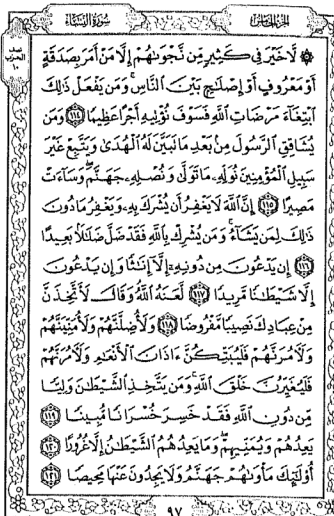 الجزء الخامس
سورة النساء
۞ لَّا خَيْرَ فِي كَثِيرٍ مِّن نَّجْوَىٰهُمْ إِلَّا مَنْ أَمَرَ بِصَدَقَةٍ
أَوْ مَعْرُوفٍ أَوْ إِصْلَٰحٍۭ بَيْنَ النَّاسِ ۚ وَمَن يَفْعَلْ ذَٰلِكَ
ابْتِغَآءَ مَرْضَاتِ اللَّهِ فَسَوْفَ نُؤْتِيهِ أَجْرًا عَظِيمًا ١١٤ وَمَن
يُشَاقِقِ الرَّسُولَ مِنۢ بَعْدِ مَا تَبَيَّنَ لَهُ الْهُدَىٰ وَيَتَّبِعْ غَيْرَ
سَبِيلِ الْمُؤْمِنِينَ نُوَلِّهِۦ مَا تَوَلَّىٰ وَنُصْلِهِۦ جَهَنَّمَ ۖ وَسَآءَتْ
مَصِيرًا ١١٥ إِنَّ اللَّهَ لَا يَغْفِرُ أَن يُشْرَكَ بِهِۦ وَيَغْفِرُ مَا دُونَ
ذَٰلِكَ لِمَن يَشَآءُ ۚ وَمَن يُشْرِكْ بِاللَّهِ فَقَدْ ضَلَّ ضَلَٰلًۢا بَعِيدًا
١١٦ إِن يَدْعُونَ مِن دُونِهِۦٓ إِلَّآ إِنَٰثًا وَإِن يَدْعُونَ
إِلَّا شَيْطَٰنًا مَّرِيدًا ١١٧ لَّعَنَهُ اللَّهُ ۘ وَقَالَ لَأَتَّخِذَنَّ
مِنْ عِبَادِكَ نَصِيبًا مَّفْرُوضًا ١١٨ وَلَأُضِلَّنَّهُمْ وَلَأُمَنِّيَنَّهُمْ
وَلَءَامُرَنَّهُمْ فَلَيُبَتِّكُنَّ ءَاذَانَ الْأَنْعَٰمِ وَلَءَامُرَنَّهُمْ
فَلَيُغَيِّرُنَّ خَلْقَ اللَّهِ ۚ وَمَن يَتَّخِذِ الشَّيْطَٰنَ وَلِيًّا
مِّن دُونِ اللَّهِ فَقَدْ خَسِرَ خُسْرَانًا مُّبِينًا ١١٩
يَعِدُهُمْ وَيُمَنِّيهِمْ ۖ وَمَا يَعِدُهُمُ الشَّيْطَٰنُ إِلَّا غُرُورًا ١٢٠
أُو۟لَٰٓئِكَ مَأْوَىٰهُمْ جَهَنَّمُ وَلَا يَجِدُونَ عَنْهَا مَحِيصًا ١٢١
٩٧